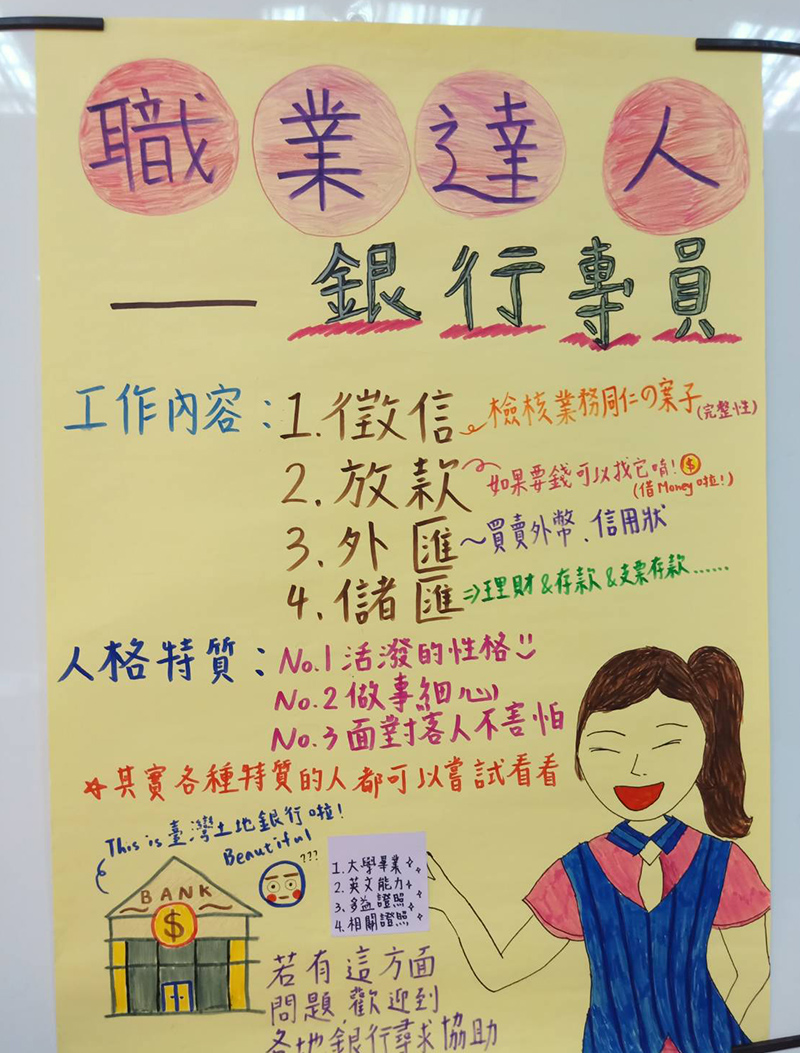 職業達人
— 銀行專員
工作內容：1.徵信 檢核業務同仁の案子(完整性)
2.放款 如果要錢可以找它唷！$
(借Money啦！)
3.外匯～買賣外幣、信用狀
4.儲匯⇒理財&存款&支票存款......
人格特質：No.1活潑的性格
No.2做事細心
No.3面對客人不害怕
☆其實各種特質的人都可以嘗試看看
This is 臺灣土地銀行啦！
Beautiful
???
BANK
$
1.大學畢業
2.英文能力
3.多益證照
4.相關證照
若有這方面
問題,歡迎到
各地銀行尋求協助